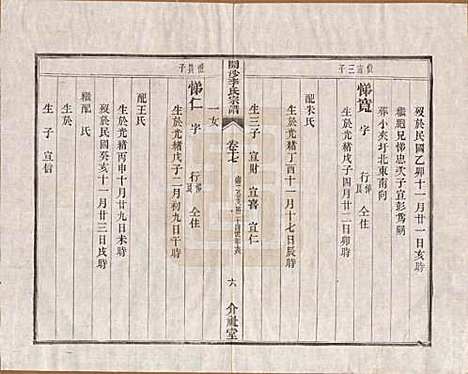 歿於民國乙卯十一月廿一日亥時
繼胞兄悌忠次子宜彭爲嗣
葬小夾圩北東南向
悌寬 字 行 仝住
生於光緒戊子四月廿二日卯時
配朱氏
生於光緒丁酉十一月十七日辰時
生三子 宜財 宜喜 宜仁
開沙李氏宗譜
卷七
六
介祉堂
一女
悌仁 字 行 仝住
生於光緒戊子二月初九日午時
配王氏
生於光緒丙申十月廿九日未時
歿於民國癸亥十一月廿三日戌時
繼配 氏
生於
生 子 宜信